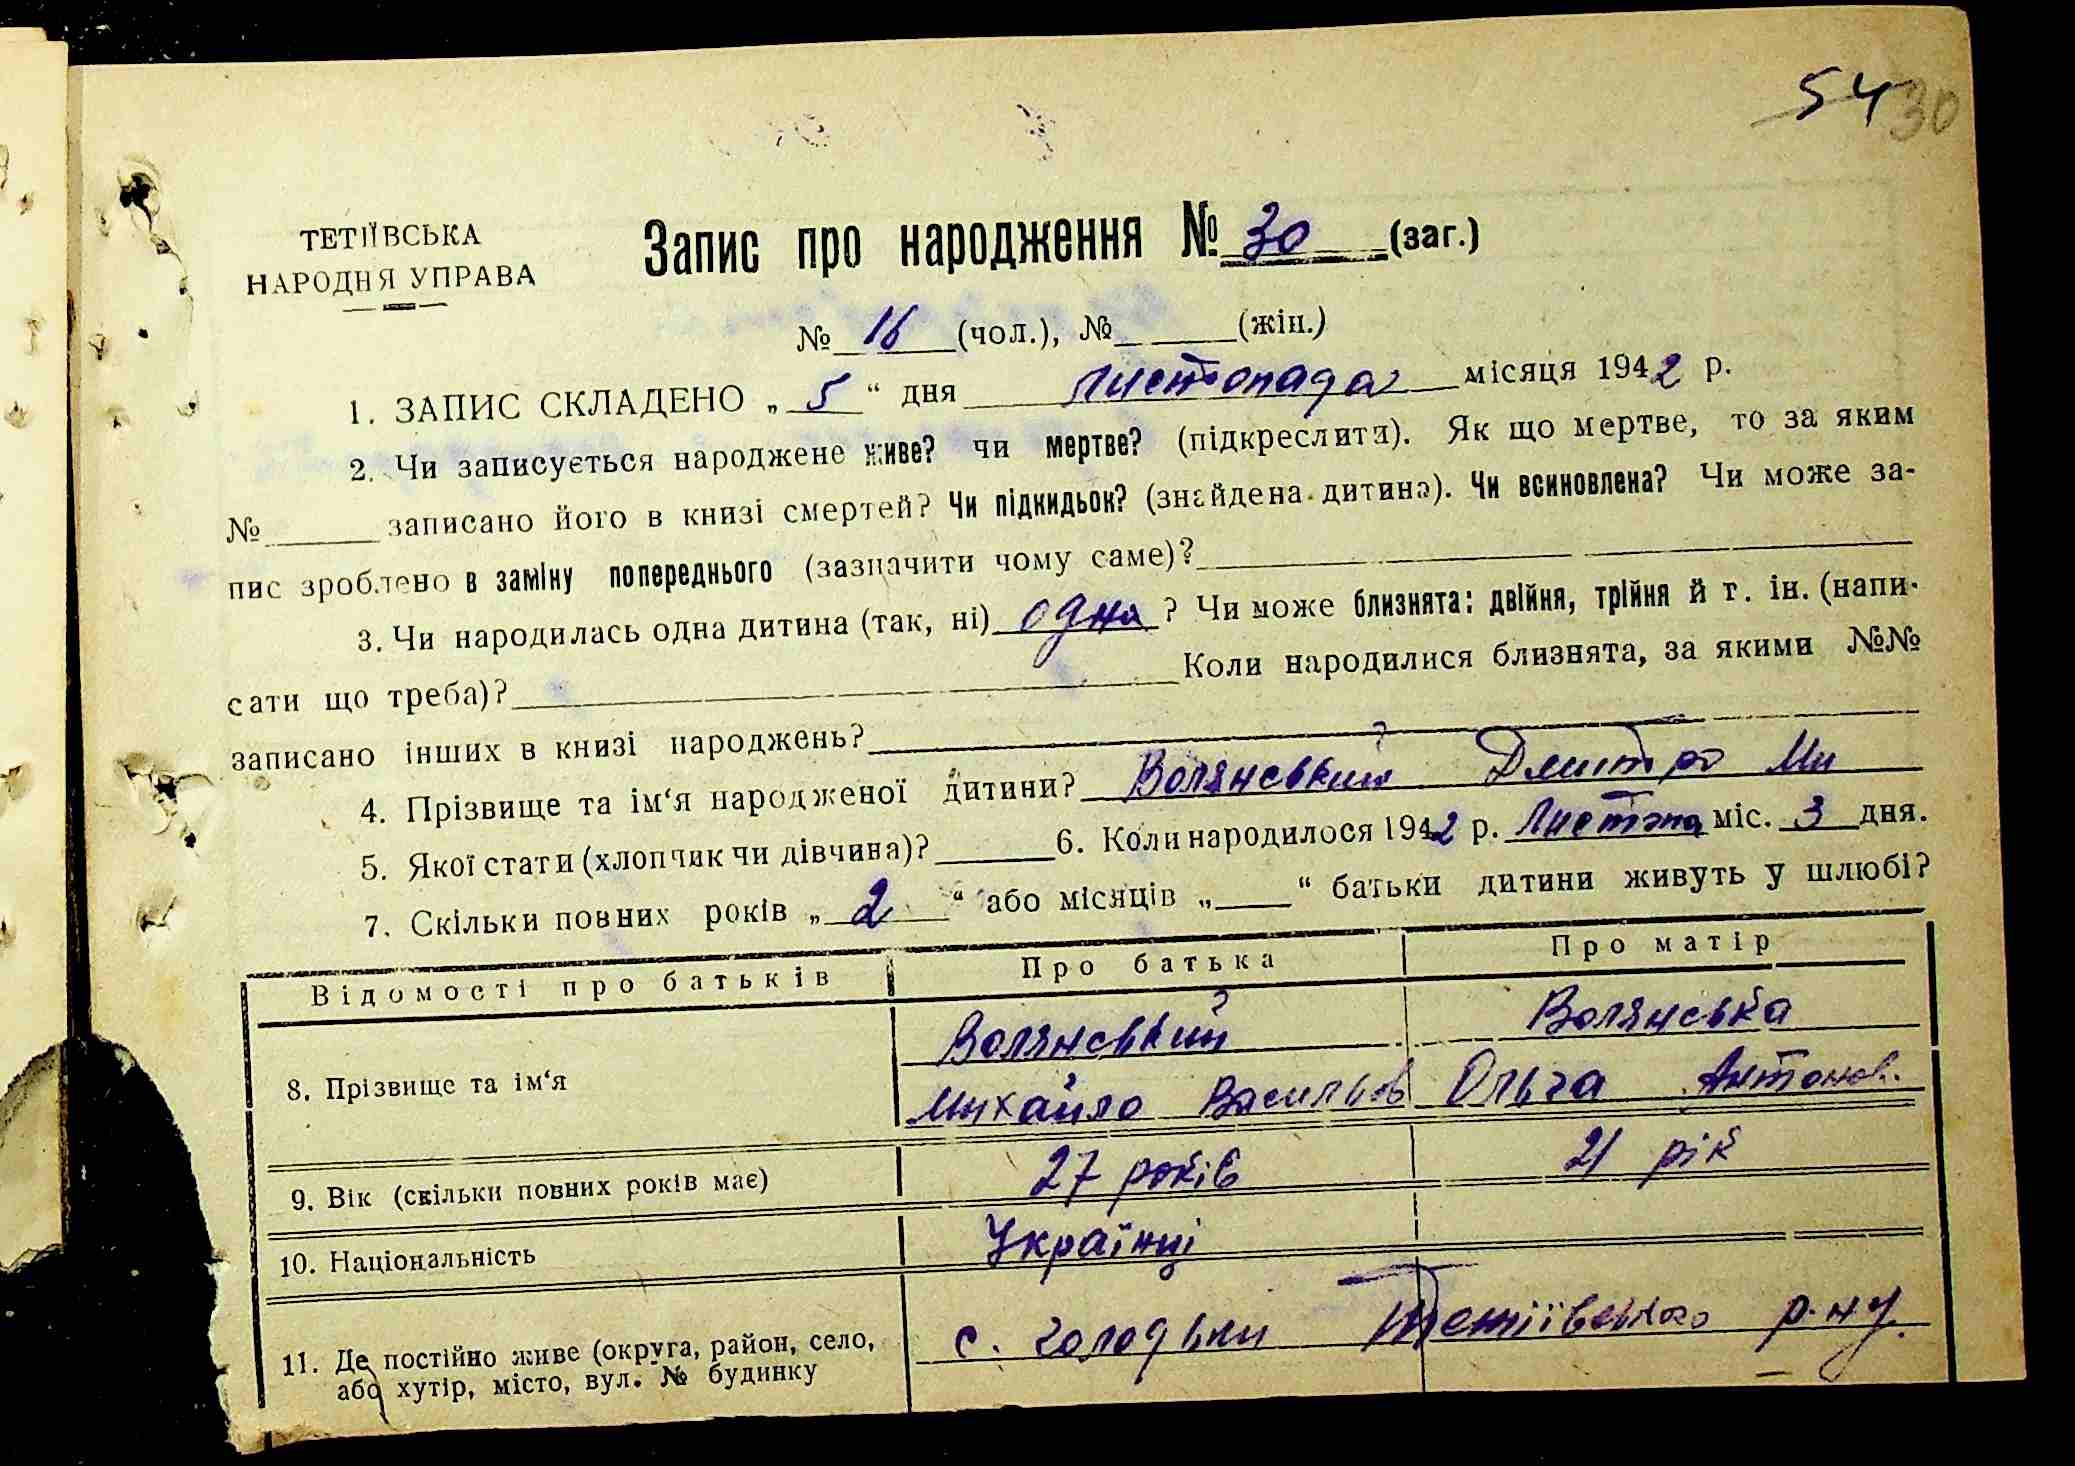 54 30
ТЕТІЇВСЬКА
НАРОДНЯ УПРАВА
Запис про народження № 30 (заг.)
№ 16 (чол.), № (жін.)
1. ЗАПИС СКЛАДЕНО „ 5 “ дня Листопада місяця 1942 р.
2. Чи записується народжене живе? чи мертве? (підкреслити). Як що мертве, то за яким
№ записано його в книзі смертей? Чи підкидьок? (знайдена дитина). Чи всиновлена? Чи може за-
пис зроблено в заміну попереднього (зазначити чому саме)?
3. Чи народилась одна дитина (так, ні) одна ? Чи може близнята: двійня, трійня й т. ін. (напи-
сати що треба)? Коли народилися близнята, за якими №№
записано інших в книзі народжень?
4. Прізвище та ім‘я народженої дитини? Волянський Дмитро Ми
5. Якої стати (хлопчик чи дівчина)? 6. Коли народилося 1942 р. Листопа міс. 3 дня.
7. Скільки повних років „ 2 “ або місяців „ “ батьки дитини живуть у шлюбі?
Відомості про батьків Про батька Про матір
8. Прізвище та ім‘я Волянський Волянська
Михайло Васильов Ольга Антонов.
9. Вік (скільки повних років має) 27 років 21 рік
10. Національність Українці
11. Де постійно живе (округа, район, село, с. Голодьки Тетіївського р-ну
або хутір, місто, вул. № будинку